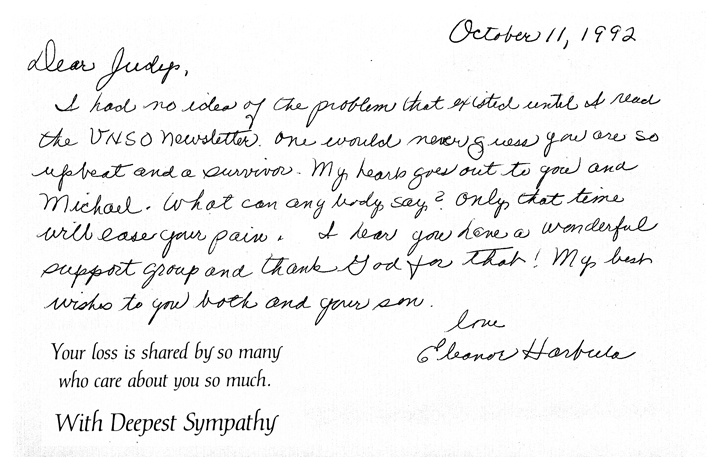 October 11, 1992
Dear Judy,
I had no idea of the problem that existed until I read
the VNSO Newsletter. One would never guess you are so
upbeat and a survivor. My heart goes out to you and
Michael. What can any body say? Only that time
will ease your pain. I hear you have a wonderful
support group and thank God for that! My best
wishes to you both and your son.
love
Eleanor Harbula
Your loss is shared by so many
who care about you so much.
With Deepest Sympathy